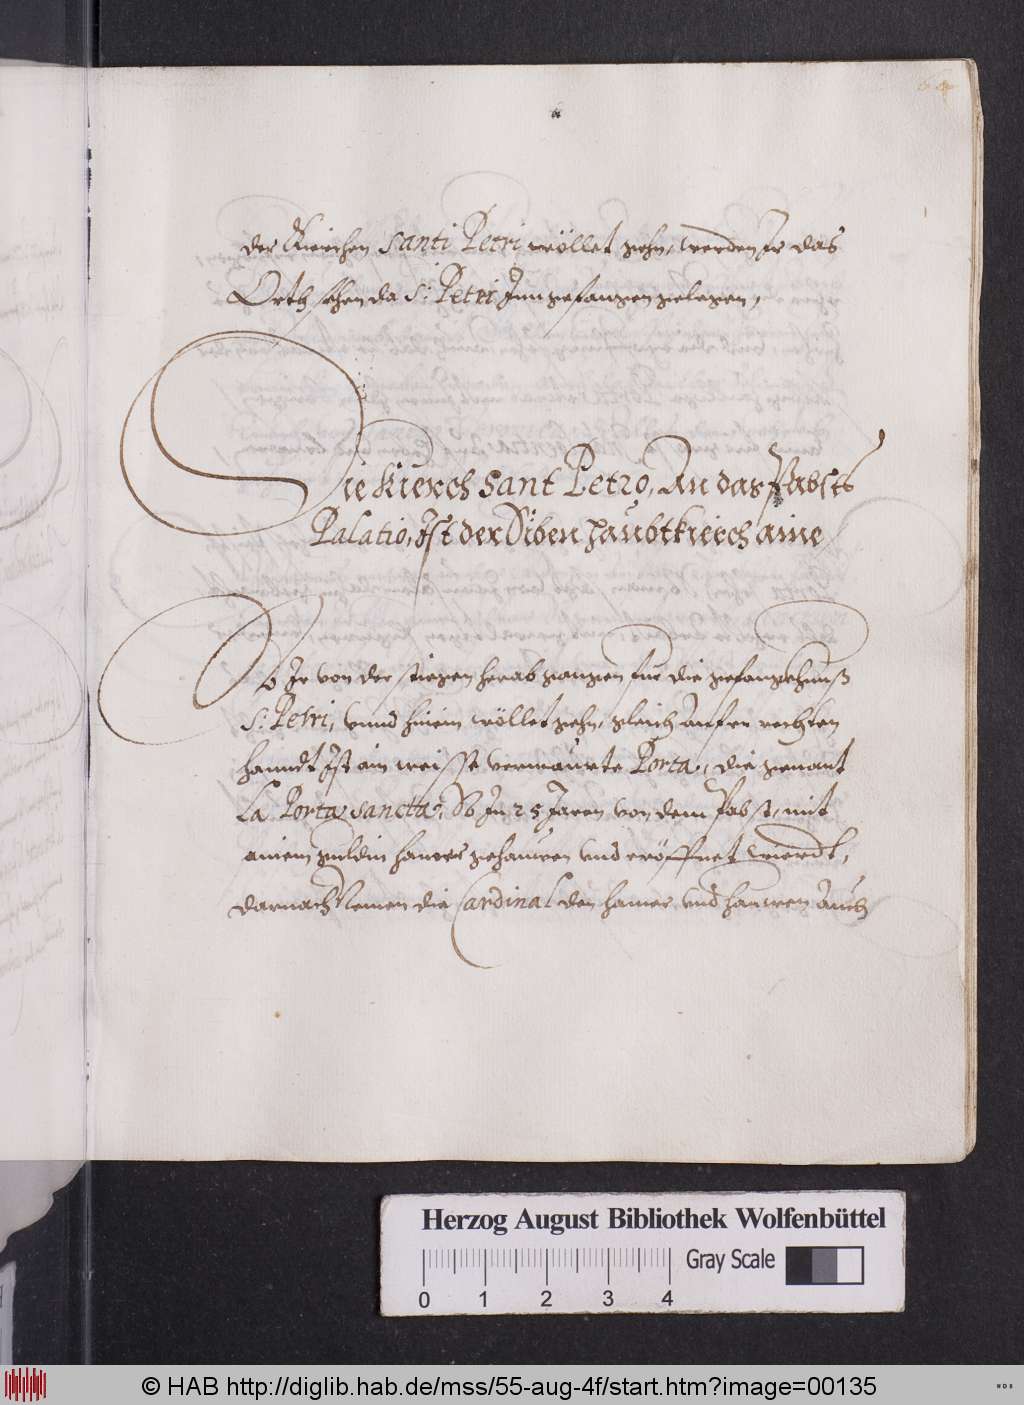 der Kierchen Santi Petri wöllet gehn, werden Ir das
Orth sehen da S: Petri Inn gefangen gelegen,
Die Kierch Sant Petro, An das Pabsts
Palatio, Ist der Siben haubtkierch aine
So Ir von der stiegen herab ganngen für die gefangkhnuß
S: Petri, vnnd hinein wöllet gehn, gleich Auf er rechten
hanndt Ist ain weisse vermaurte Porta, die genant
La Porta sancta, So In 25 Jaren von dem Pabst, mit
ainem guldin hamer gehauwen vnd eröffnet wierdt,
darnach Nemen die Cardinal den hamer vnd hauwen Auch
Herzog August Bibliothek Wolfenbüttel
Gray Scale
0 1 2 3 4
© HAB http://diglib.hab.de/mss/55-aug-4f/start.htm?image=00135